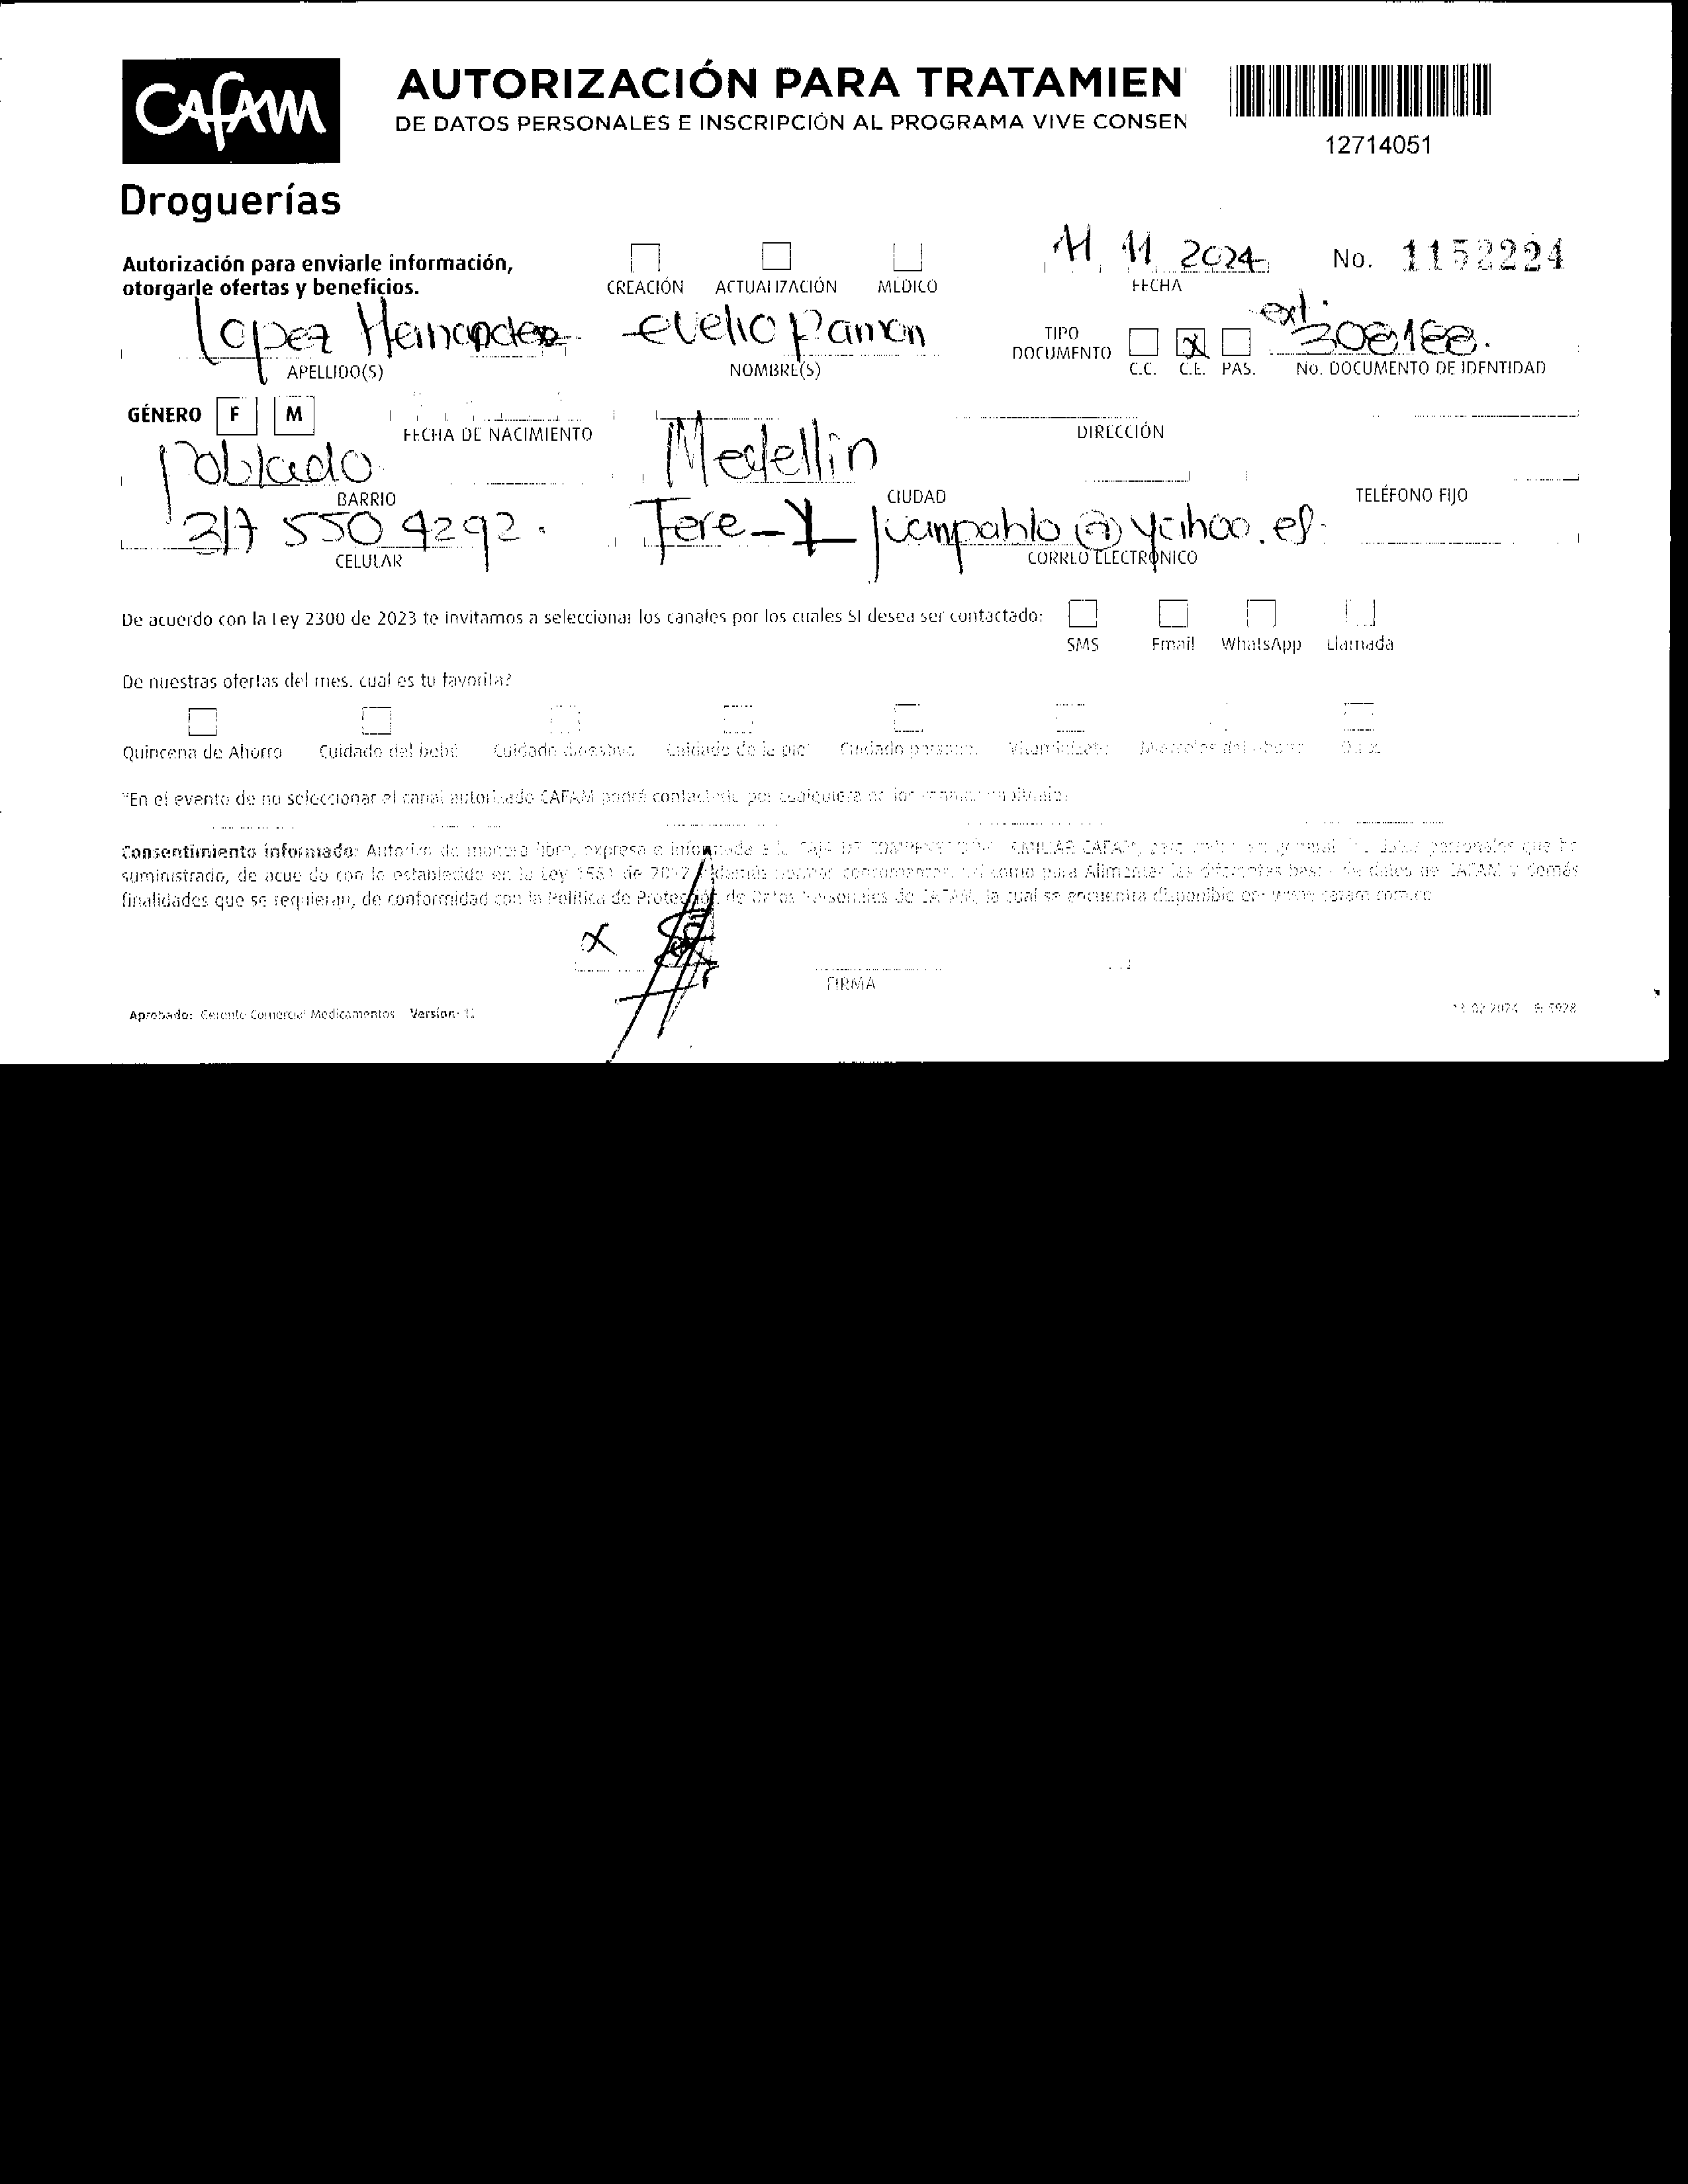 CAFAM
AUTORIZACIÓN PARA TRATAMIEN
DE DATOS PERSONALES E INSCRIPCIÓN AL PROGRAMA VIVE CONSEN
12714051
Droguerías
Autorización para enviarle información,
otorgarle ofertas y beneficios.
CREACIÓN ACTUALIZACIÓN MÉDICO
11 11 2024
FECHA
No. 1152224
Lopez Hernandez
APELLIDO(S)
evelio Ramon
NOMBRE(S)
TIPO
DOCUMENTO
C.C. C.E. PAS.
ext. 308188.
No. DOCUMENTO DE IDENTIDAD
GÉNERO F M
FECHA DE NACIMIENTO
DIRECCIÓN
Poblado
BARRIO
Medellin
CIUDAD
TELÉFONO FIJO
317 550 4292.
CELULAR
Tere_Y_juanpablo@yahoo.es
CORREO ELECTRÓNICO
De acuerdo con la Ley 2300 de 2023 te invitamos a seleccionar los canales por los cuales SI desea ser contactado:
SMS Email WhatsApp Llamada
De nuestras ofertas del mes, cual es tu favorita?
Quincena de Ahorro Cuidado del bebé Cuidado digestivo Cuidado de la piel Cuidado personal
"En el evento de no seleccionar el canal autorizado CAFAM podrá contactarle por cualquiera de los
Consentimiento informado: Autorizo de manera libre, expresa e informada a la CAJA DE COMPENSACIÓN FAMILIAR CAFAM, para datos personales que he
suministrado, de acuerdo con lo establecido en la Ley 1581 de 2012 y demás normas concordantes, así como para Alimentar las diferentes bases de datos de CAFAM y demás
finalidades que se requieran, de conformidad con la Política de Protección de Datos Personales de CAFAM, la cual se encuentra disponible en: www.cafam.com.co
X
FIRMA
Aprobado: Gerente Comercial Medicamentos Version: